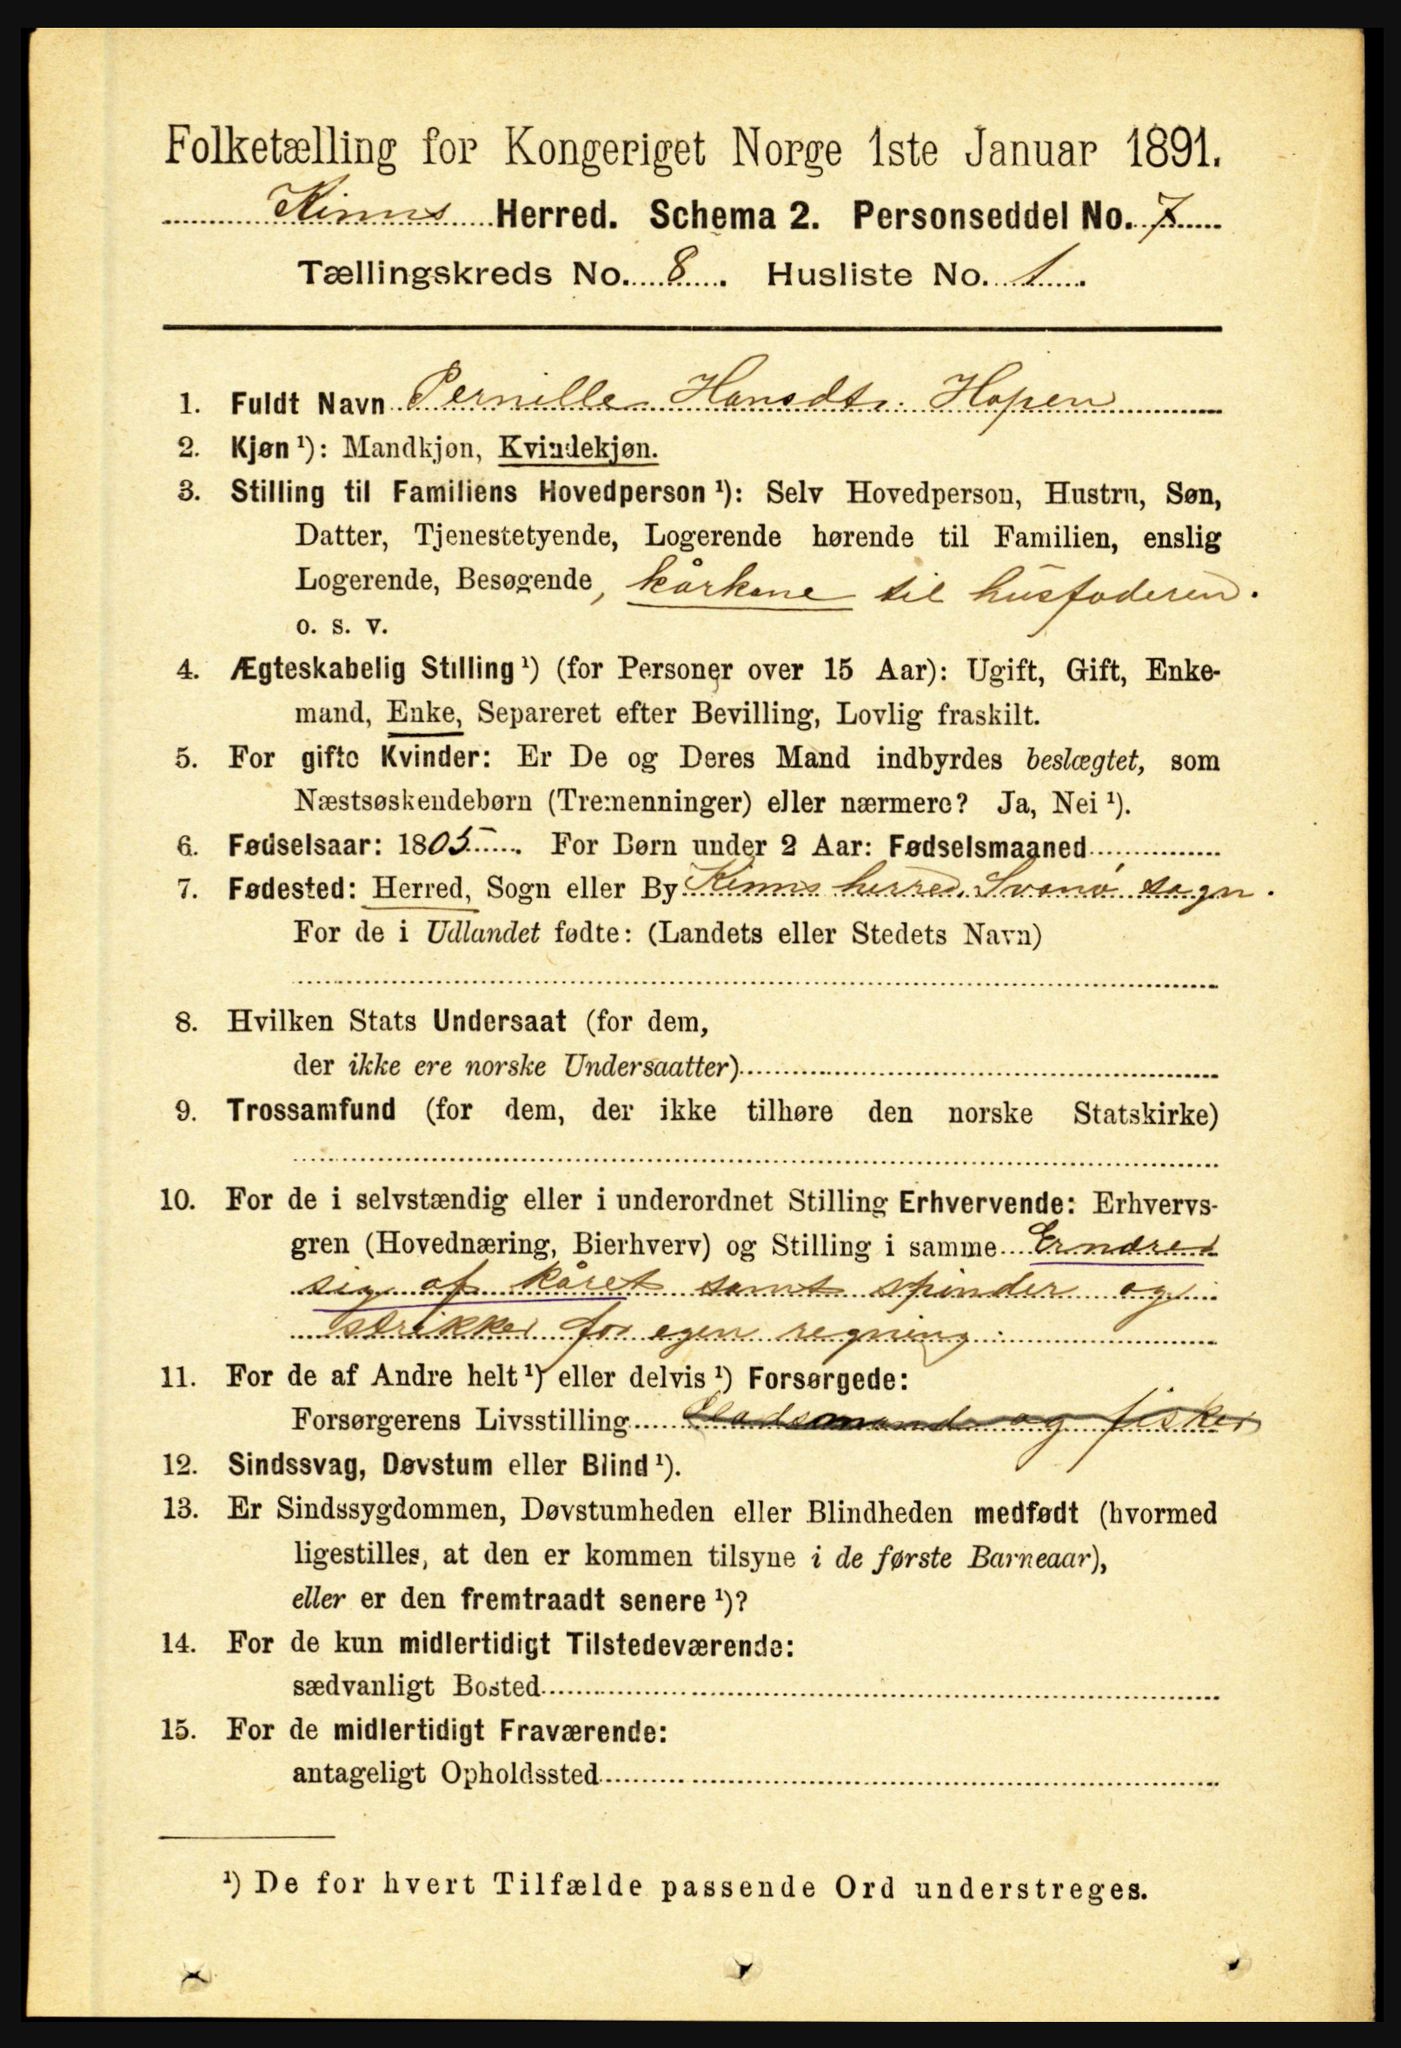 Folketælling for Kongeriget Norge 1ste Januar 1891.
Kinns Herred. Schema 2. Personseddel No. 7
Tællingskreds No. 8. Husliste No. 1.
1. Fuldt Navn Pernille Hansdtr. Hopen
2. Kjøn ¹): Mandkjøn, Kvindekjøn.
3. Stilling til Familiens Hovedperson ¹): Selv Hovedperson, Hustru, Søn,
Datter, Tjenestetyende, Logerende hørende til Familien, enslig
Logerende, Besøgende, kårkone til husfaderen.
o. s. v.
4. Ægteskabelig Stilling ¹) (for Personer over 15 Aar): Ugift, Gift, Enke-
mand, Enke, Separeret efter Bevilling, Lovlig fraskilt.
5. For gifte Kvinder: Er De og Deres Mand indbyrdes beslægtet, som
Næstsøskendebørn (Tremenninger) eller nærmere? Ja, Nei ¹).
6. Fødselsaar: 1805. For Børn under 2 Aar: Fødselsmaaned
7. Fødested: Herred, Sogn eller By Kinns herred, Svanø sogn.
For de i Udlandet fødte: (Landets eller Stedets Navn)
8. Hvilken Stats Undersaat (for dem,
der ikke ere norske Undersaatter)
9. Trossamfund (for dem, der ikke tilhøre den norske Statskirke)
10. For de i selvstændig eller i underordnet Stilling Erhvervende: Erhvervs-
gren (Hovednæring, Bierhverv) og Stilling i samme Ernærer
sig af kåret samt spinder og
strikker for egen regning.
11. For de af Andre helt ¹) eller delvis ¹) Forsørgede:
Forsørgerens Livsstilling Pladsmand og fisker
12. Sindssvag, Døvstum eller Blind ¹).
13. Er Sindssygdommen, Døvstumheden eller Blindheden medfødt (hvormed
ligestilles, at den er kommen tilsyne i de første Barneaar),
eller er den fremtraadt senere ¹)?
14. For de kun midlertidigt Tilstedeværende:
sædvanligt Bosted
15. For de midlertidigt Fraværende:
antageligt Opholdssted
¹) De for hvert Tilfælde passende Ord understreges.